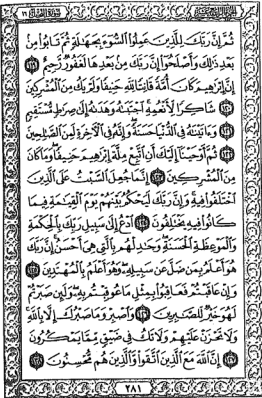 ثُمَّ إِنَّ رَبَّكَ لِلَّذِينَ عَمِلُوا۟ ٱلسُّوٓءَ بِجَهَـٰلَةٍ ثُمَّ تَابُوا۟ مِنۢ
بَعْدِ ذَٰلِكَ وَأَصْلَحُوٓا۟ إِنَّ رَبَّكَ مِنۢ بَعْدِهَا لَغَفُورٌ رَّحِيمٌ ١١٩
إِنَّ إِبْرَٰهِيمَ كَانَ أُمَّةً قَانِتًا لِّلَّهِ حَنِيفًا وَلَمْ يَكُ مِنَ ٱلْمُشْرِكِينَ
١٢٠ شَاكِرًا لِّأَنْعُمِهِ ۚ ٱجْتَبَىٰهُ وَهَدَىٰهُ إِلَىٰ صِرَٰطٍ مُّسْتَقِيمٍ
١٢١ وَءَاتَيْنَـٰهُ فِى ٱلدُّنْيَا حَسَنَةً ۖ وَإِنَّهُۥ فِى ٱلْـَٔاخِرَةِ لَمِنَ ٱلصَّـٰلِحِينَ
١٢٢ ثُمَّ أَوْحَيْنَآ إِلَيْكَ أَنِ ٱتَّبِعْ مِلَّةَ إِبْرَٰهِيمَ حَنِيفًا ۖ وَمَا كَانَ
مِنَ ٱلْمُشْرِكِينَ ١٢٣ إِنَّمَا جُعِلَ ٱلسَّبْتُ عَلَى ٱلَّذِينَ
ٱخْتَلَفُوا۟ فِيهِ ۚ وَإِنَّ رَبَّكَ لَيَحْكُمُ بَيْنَهُمْ يَوْمَ ٱلْقِيَـٰمَةِ فِيمَا
كَانُوا۟ فِيهِ يَخْتَلِفُونَ ١٢٤ ٱدْعُ إِلَىٰ سَبِيلِ رَبِّكَ بِٱلْحِكْمَةِ
وَٱلْمَوْعِظَةِ ٱلْحَسَنَةِ ۖ وَجَـٰدِلْهُم بِٱلَّتِى هِىَ أَحْسَنُ ۚ إِنَّ رَبَّكَ
هُوَ أَعْلَمُ بِمَن ضَلَّ عَن سَبِيلِهِۦ ۖ وَهُوَ أَعْلَمُ بِٱلْمُهْتَدِينَ ١٢٥
وَإِنْ عَاقَبْتُمْ فَعَاقِبُوا۟ بِمِثْلِ مَا عُوقِبْتُم بِهِۦ ۖ وَلَئِن صَبَرْتُمْ
لَهُوَ خَيْرٌ لِّلصَّـٰبِرِينَ ١٢٦ وَٱصْبِرْ وَمَا صَبْرُكَ إِلَّا بِٱللَّهِ ۚ
وَلَا تَحْزَنْ عَلَيْهِمْ وَلَا تَكُ فِى ضَيْقٍ مِّمَّا يَمْكُرُونَ
١٢٧ إِنَّ ٱللَّهَ مَعَ ٱلَّذِينَ ٱتَّقَوا۟ وَّٱلَّذِينَ هُم مُّحْسِنُونَ ١٢٨
٢٨١